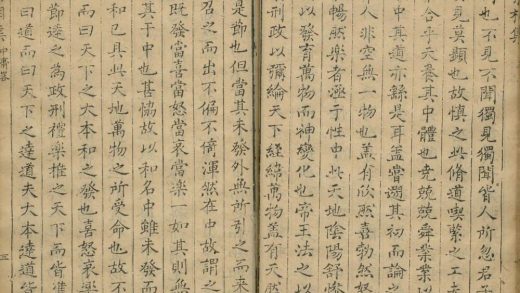 也不見不聞獨見獨聞皆人所忽君子
見莫顯也故慎之此脩道喫緊之工夫
合乎天養其中體也兢兢舜業業
中其道亦繇是耳盖嘗遡其初而論之
人非空無一物也盖有欣然喜勃然怒
暢然樂者涵于性中此天地陰陽舒慘
以發育萬物而神變化也帝王法之以
刑政以彌綸天下經緯萬物盖有天然
是節也但當其未發外無所引之而来
召之而出不偏不倚渾然在中故謂之
既發當喜當怒當哀當樂一如其則無
其于中也甚恊故以和名中雖未發而
和已具此天地萬物之所受命也故不
而曰天下之大本和之發也喜怒哀樂
節達之為政刑禮樂推之天下而皆凖
曰道而曰天下之達道夫大本達道皆
集 中庸答 三